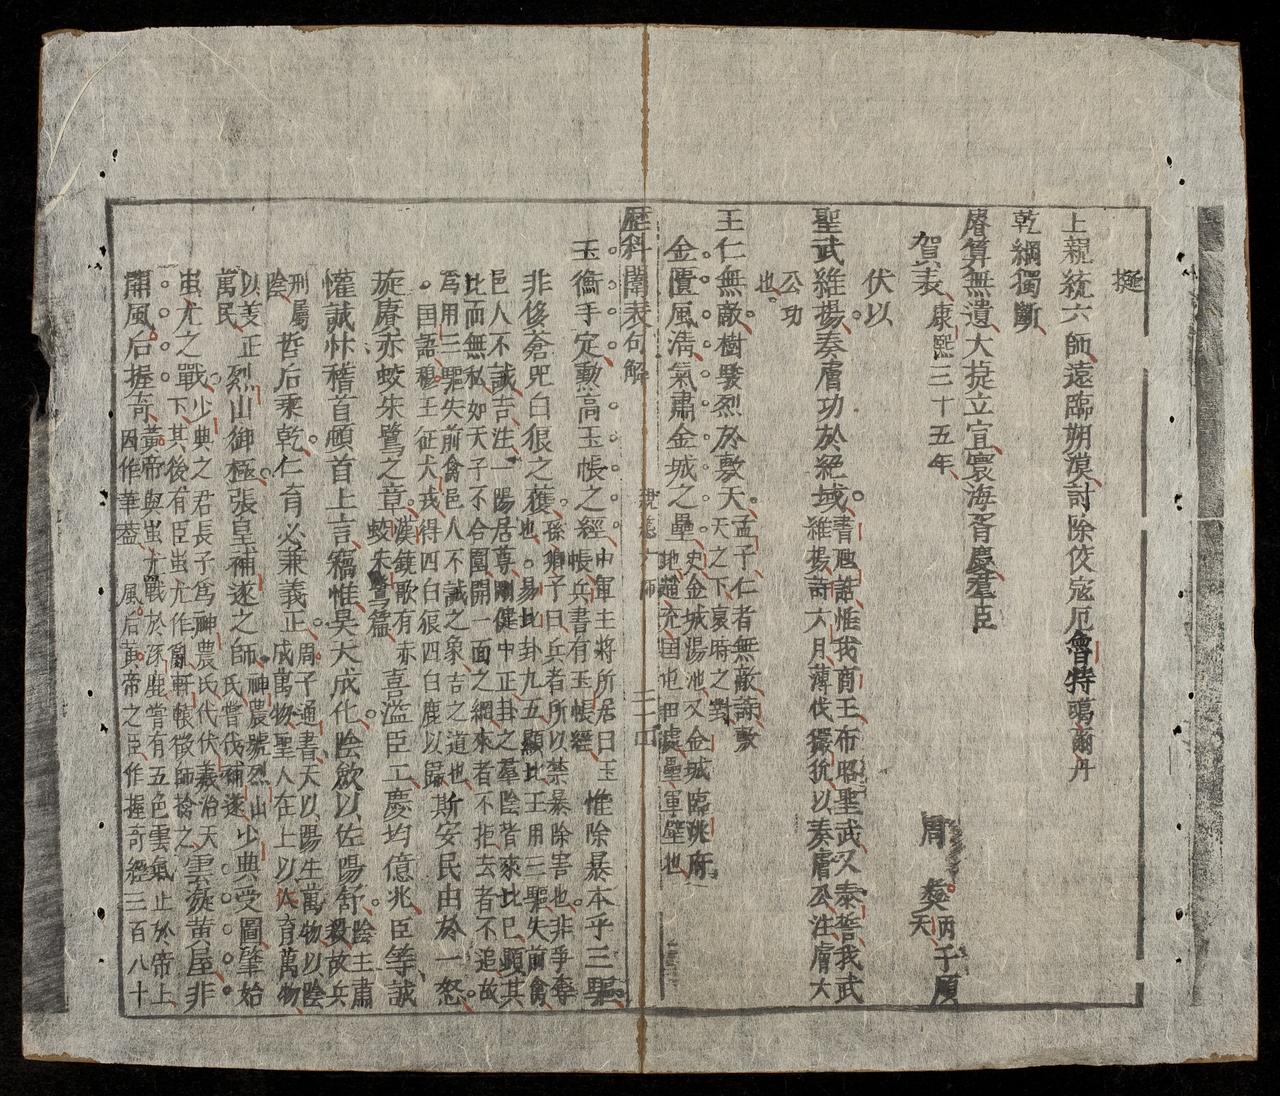 擬
上親統六師遠臨朔漠討除佼寇厄會特噶爾丹
乾綱獨斷
睿算無遺大㨗立宣寰海胥慶羣臣
賀表康熙三十五年 周 天 丙子順
伏以
聖武維揚奏膚功於絕域書誥惟我商王布昭聖武又泰誓我武
維揚詩六月薄伐玁狁以奏膚公注膚大
公功
也
王仁無敵樹駿烈於敷天孟子仁者無敵詩敷
天之下裒時之對
金匱風淸氣肅金城之壘史金城湯池又金城臨洮府
地趙充囯也田處壘軍壁也
歷科闈表句解 三十四
玉衡手定勲高玉帳之經中軍主將所居曰玉
帳兵書有玉帳經惟除暴本乎三驅
孫卿子曰兵者所以禁暴除害也非爭奪
非俊蒼兕白狼之獲也易比卦九五顯比王用三驅失前禽
邑人不誡吉注一陽居尊剛健中正卦之羣陰皆來比已顯其
比而無私如天子不合圍開一面之網來者不拒去者不追故
爲用三驅失前禽邑人不誡之象吉之道也斯安民由於一怒
囯語穆王征犬戎得四白狼四白鹿以歸
旋賡赤蛟朱鷺之章漢鐃歌有赤
蛟朱鷺篇喜溢臣工慶均億兆臣等誠
懽誠忭稽首頓首上言竊惟昊天成化陰歛以佐陽舒陰主肅
殺故兵
刑屬
陰哲后乘乾仁育必兼義正周子通書天以陽生萬物以陰
成萬物聖人在上以仁育萬物
以義正
萬民烈山御極張皇補遂之師神農號烈山
氏嘗伐補遂少典受圖肇始
蚩尤之戰少典之君長子爲神農氏代伏羲治天
下其後有臣蚩尤作亂軒轅徵師擒之雲旋黃屋非
開風后握奇黃帝與蚩尤戰於涿鹿嘗有五色雲氣止於帝上
因作華葢 風后黃帝之臣作握奇經三百八十